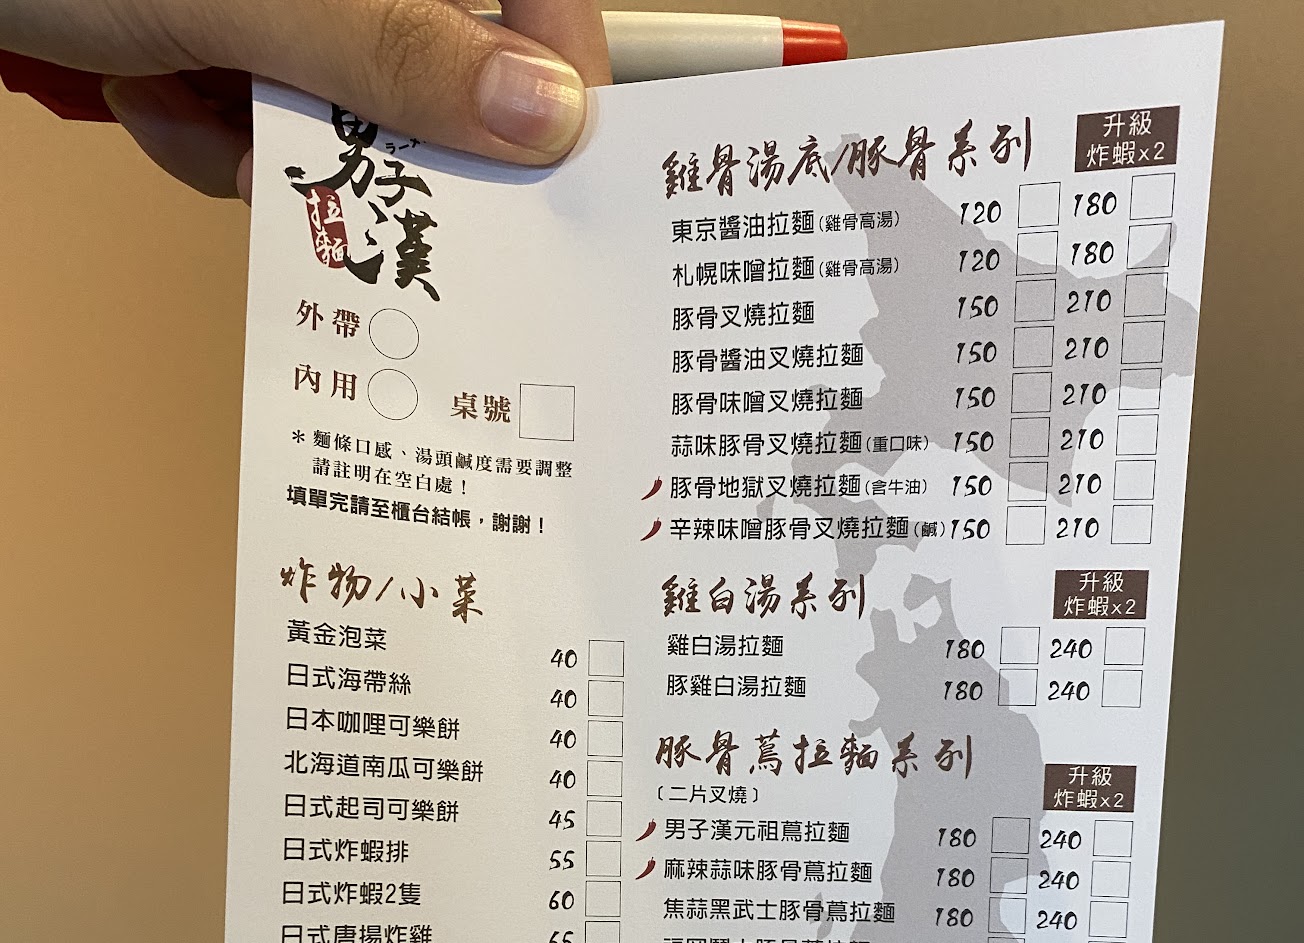 男子漢
拉麵
外帶
內用
桌號
＊麵條口感、湯頭鹹度需要調整
請註明在空白處！
填單完請至櫃台結帳，謝謝！
炸物/小菜
黃金泡菜 40
日式海帶絲 40
日本咖哩可樂餅 40
北海道南瓜可樂餅 40
日式起司可樂餅 45
日式炸蝦排 55
日式炸蝦2隻 60
日式唐揚炸雞 65
雞骨湯底/豚骨系列
升級
炸蝦x2
東京醬油拉麵(雞骨高湯) 120 180
札幌味噌拉麵(雞骨高湯) 120 180
豚骨叉燒拉麵 150 210
豚骨醬油叉燒拉麵 150 210
豚骨味噌叉燒拉麵 150 210
蒜味豚骨叉燒拉麵(重口味) 150 210
豚骨地獄叉燒拉麵(含牛油) 150 210
辛辣味噌豚骨叉燒拉麵(鹹) 150 210
雞白湯系列
升級
炸蝦x2
雞白湯拉麵 180 240
豚雞白湯拉麵 180 240
豚骨蔦拉麵系列
升級
炸蝦x2
〔二片叉燒〕
男子漢元祖蔦拉麵 180 240
麻辣蒜味豚骨蔦拉麵 180 240
焦蒜黑武士豚骨蔦拉麵 180 240